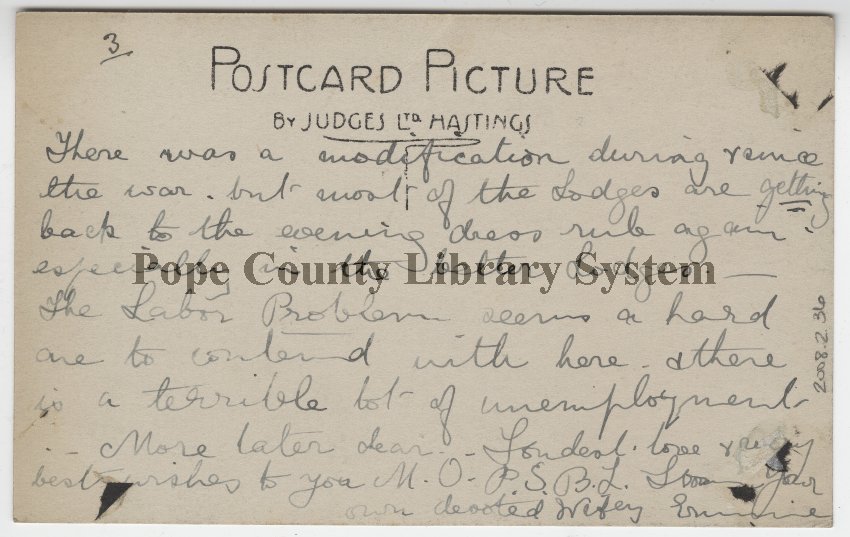 3
POSTCARD PICTURE
BY JUDGES LTD HASTINGS
There was a modification during & since
the war. but most of the Lodges are getting
back to the evening dress rule again.
especially in the better Lodges —
Pope County Library System
The Labor Problem seems a hard
one to contend with here. & there
is a terrible lot of unemployment
- More later dear - Fondest love &
best wishes to you M. O. P. S. B. L. from your
own devoted Wifey Ermine
2008.2.36